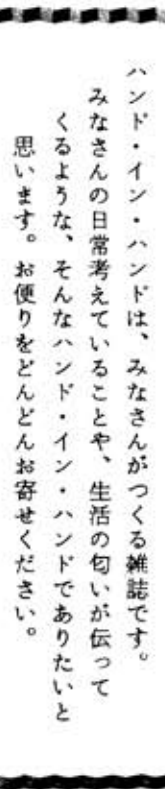 ハンド・イン・ハンドは、みなさんがつくる雑誌です。
みなさんの日常考えていることや、生活の匂いが伝って
くるような、そんなハンド・イン・ハンドでありたいと
思います。お便りをどんどんお寄せください。